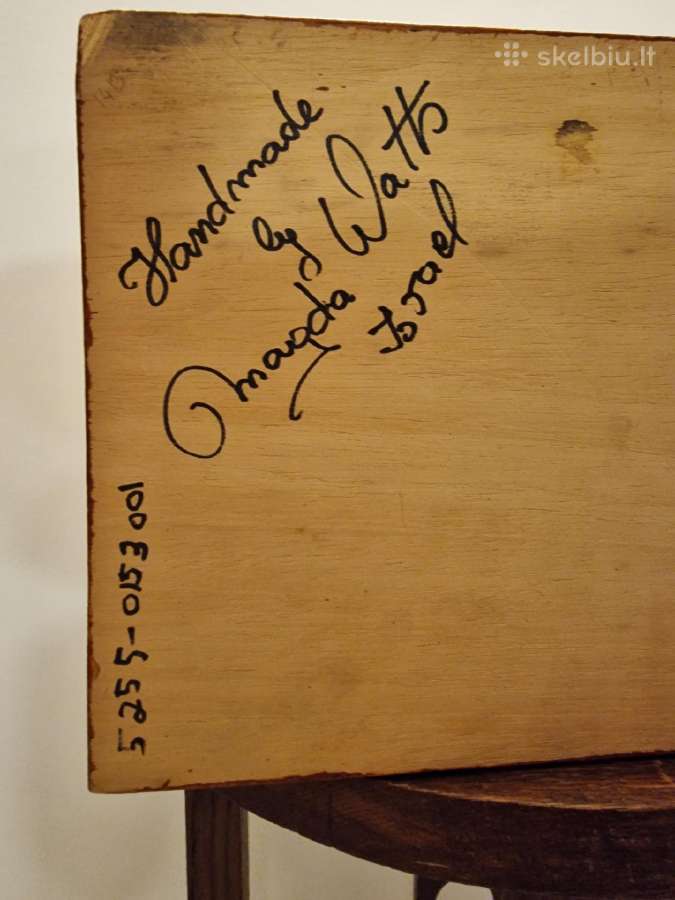 skelbiu.lt
Handmade
by
Magda Watts
Israel
5255-0153001